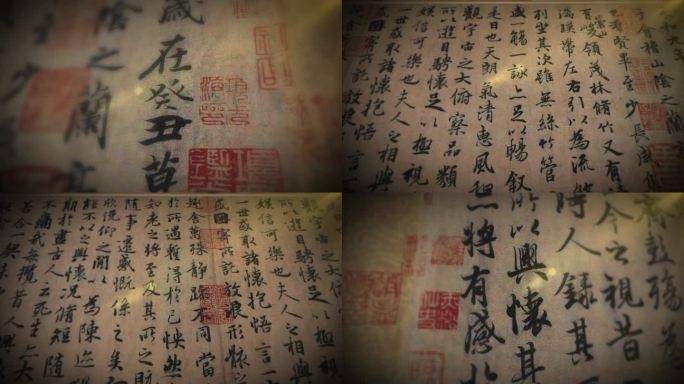 歲
在癸丑暮
陰之蘭
少
和九年
會稽山陰之蘭
群賢畢至少長咸
崇山
有峻領茂林脩竹又有清
湍暎帶左右引以為流
列坐其次雖無絲竹管
盛一觴一詠亦足以暢敘
是日也天朗氣清惠風和
觀宇宙之大俯察品類
所以遊目騁懷足以極視
娛信可樂也夫人之相與
一世或取諸懷抱悟言
寄所託放浪
觀宇宙之大
所以遊目騁懷足以
娛信可樂也夫人之相與
一世或取諸懷抱悟言一
或因寄所託放浪形骸之
趣舍萬殊靜躁不同當
於所遇暫得於己快然
知老之將至及其所之既
隨事遷感慨係之矣
欣俛仰之間以為陳迹
能不以之興懷況脩短隨
期於盡古人云死生亦大
不痛哉每攬昔
若合一契未
彭殤為
今之視昔
時人錄其
所以興懷其
亦將有感於